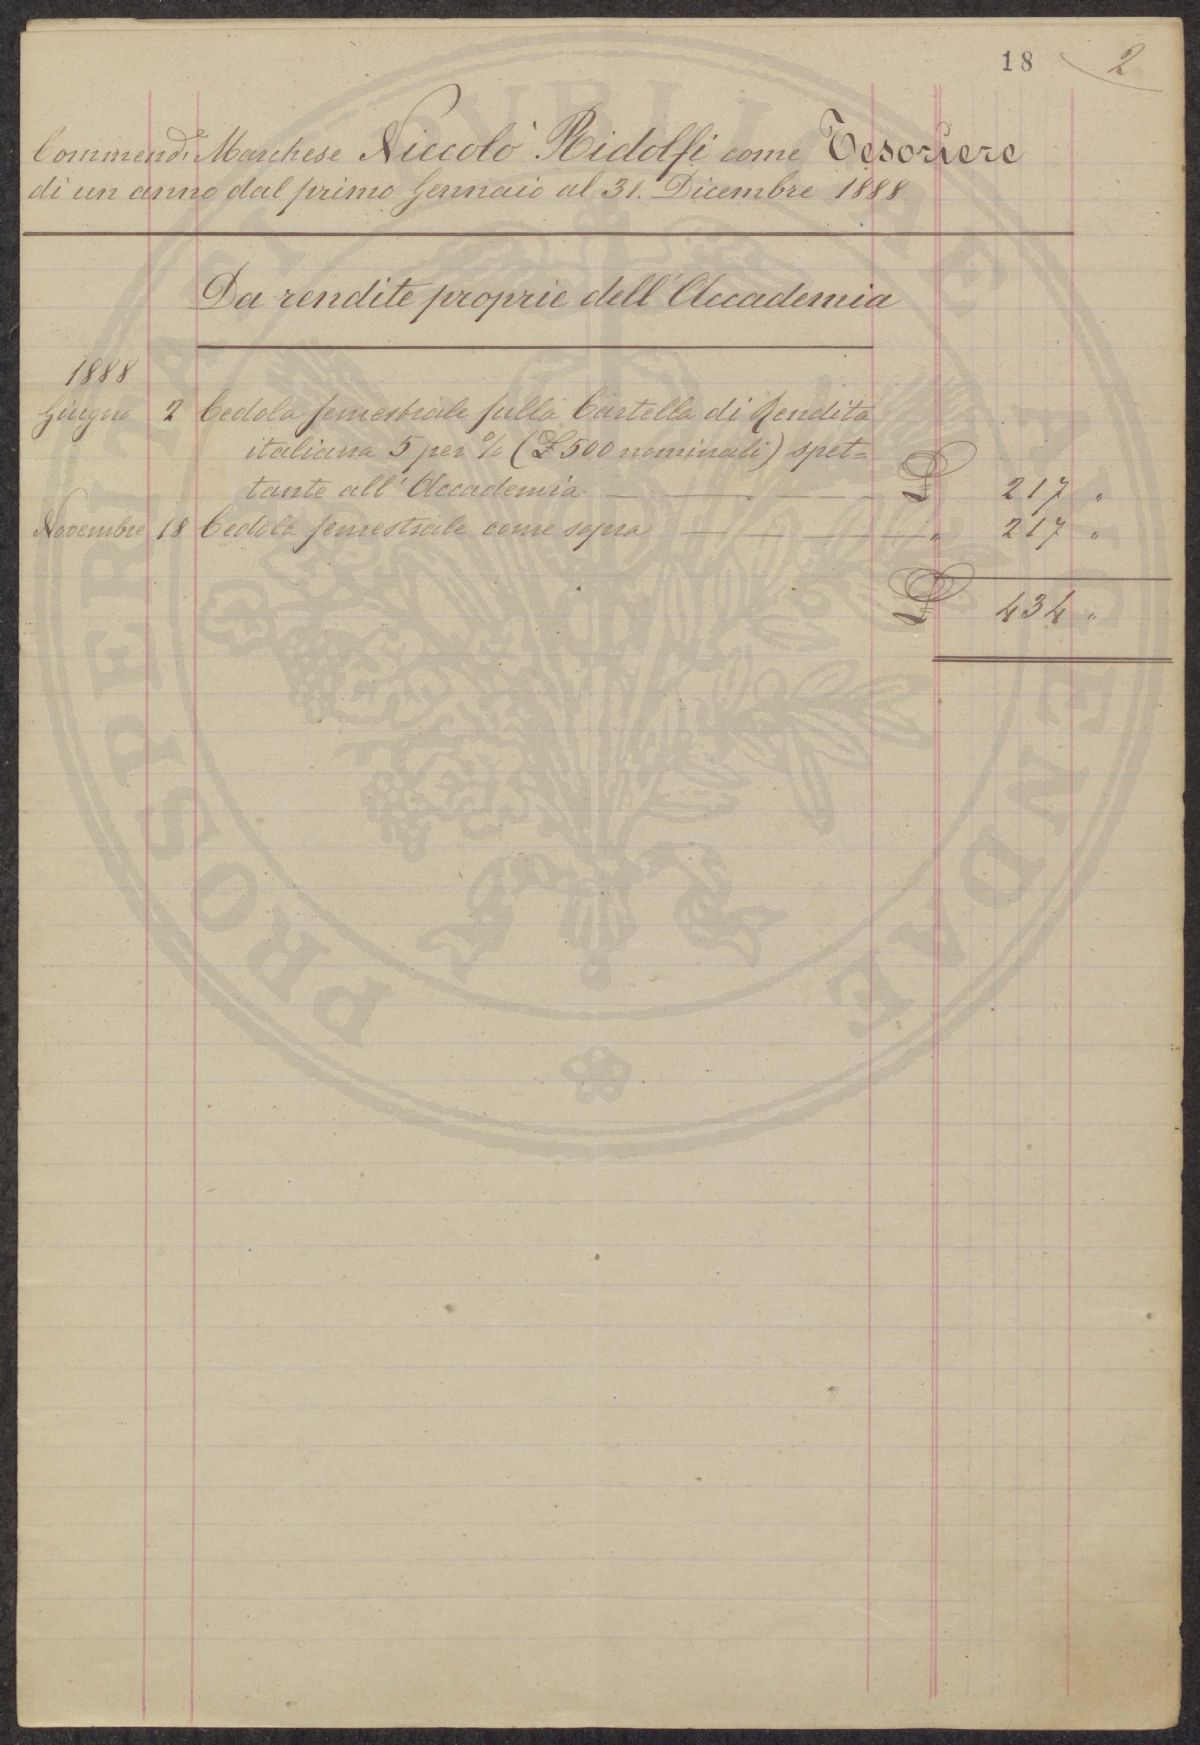 18 2
Commendre Marchese Niccolò Ridolfi come Tesoriere
di un anno dal primo Gennaio al 31. Dicembre 1888
Da rendite proprie dell'Accademia
1888
Giugno 2 Cedola semestrale sulla Cartella di Rendita
italiana 5 per % (£ 500 nominali) spet=
tante all'Accademia £ 217 "
Novembre 18 Cedola semestrale come sopra " 217 "
£ 434 "
PROSPERITATI PVBLICAE AVGENDAE